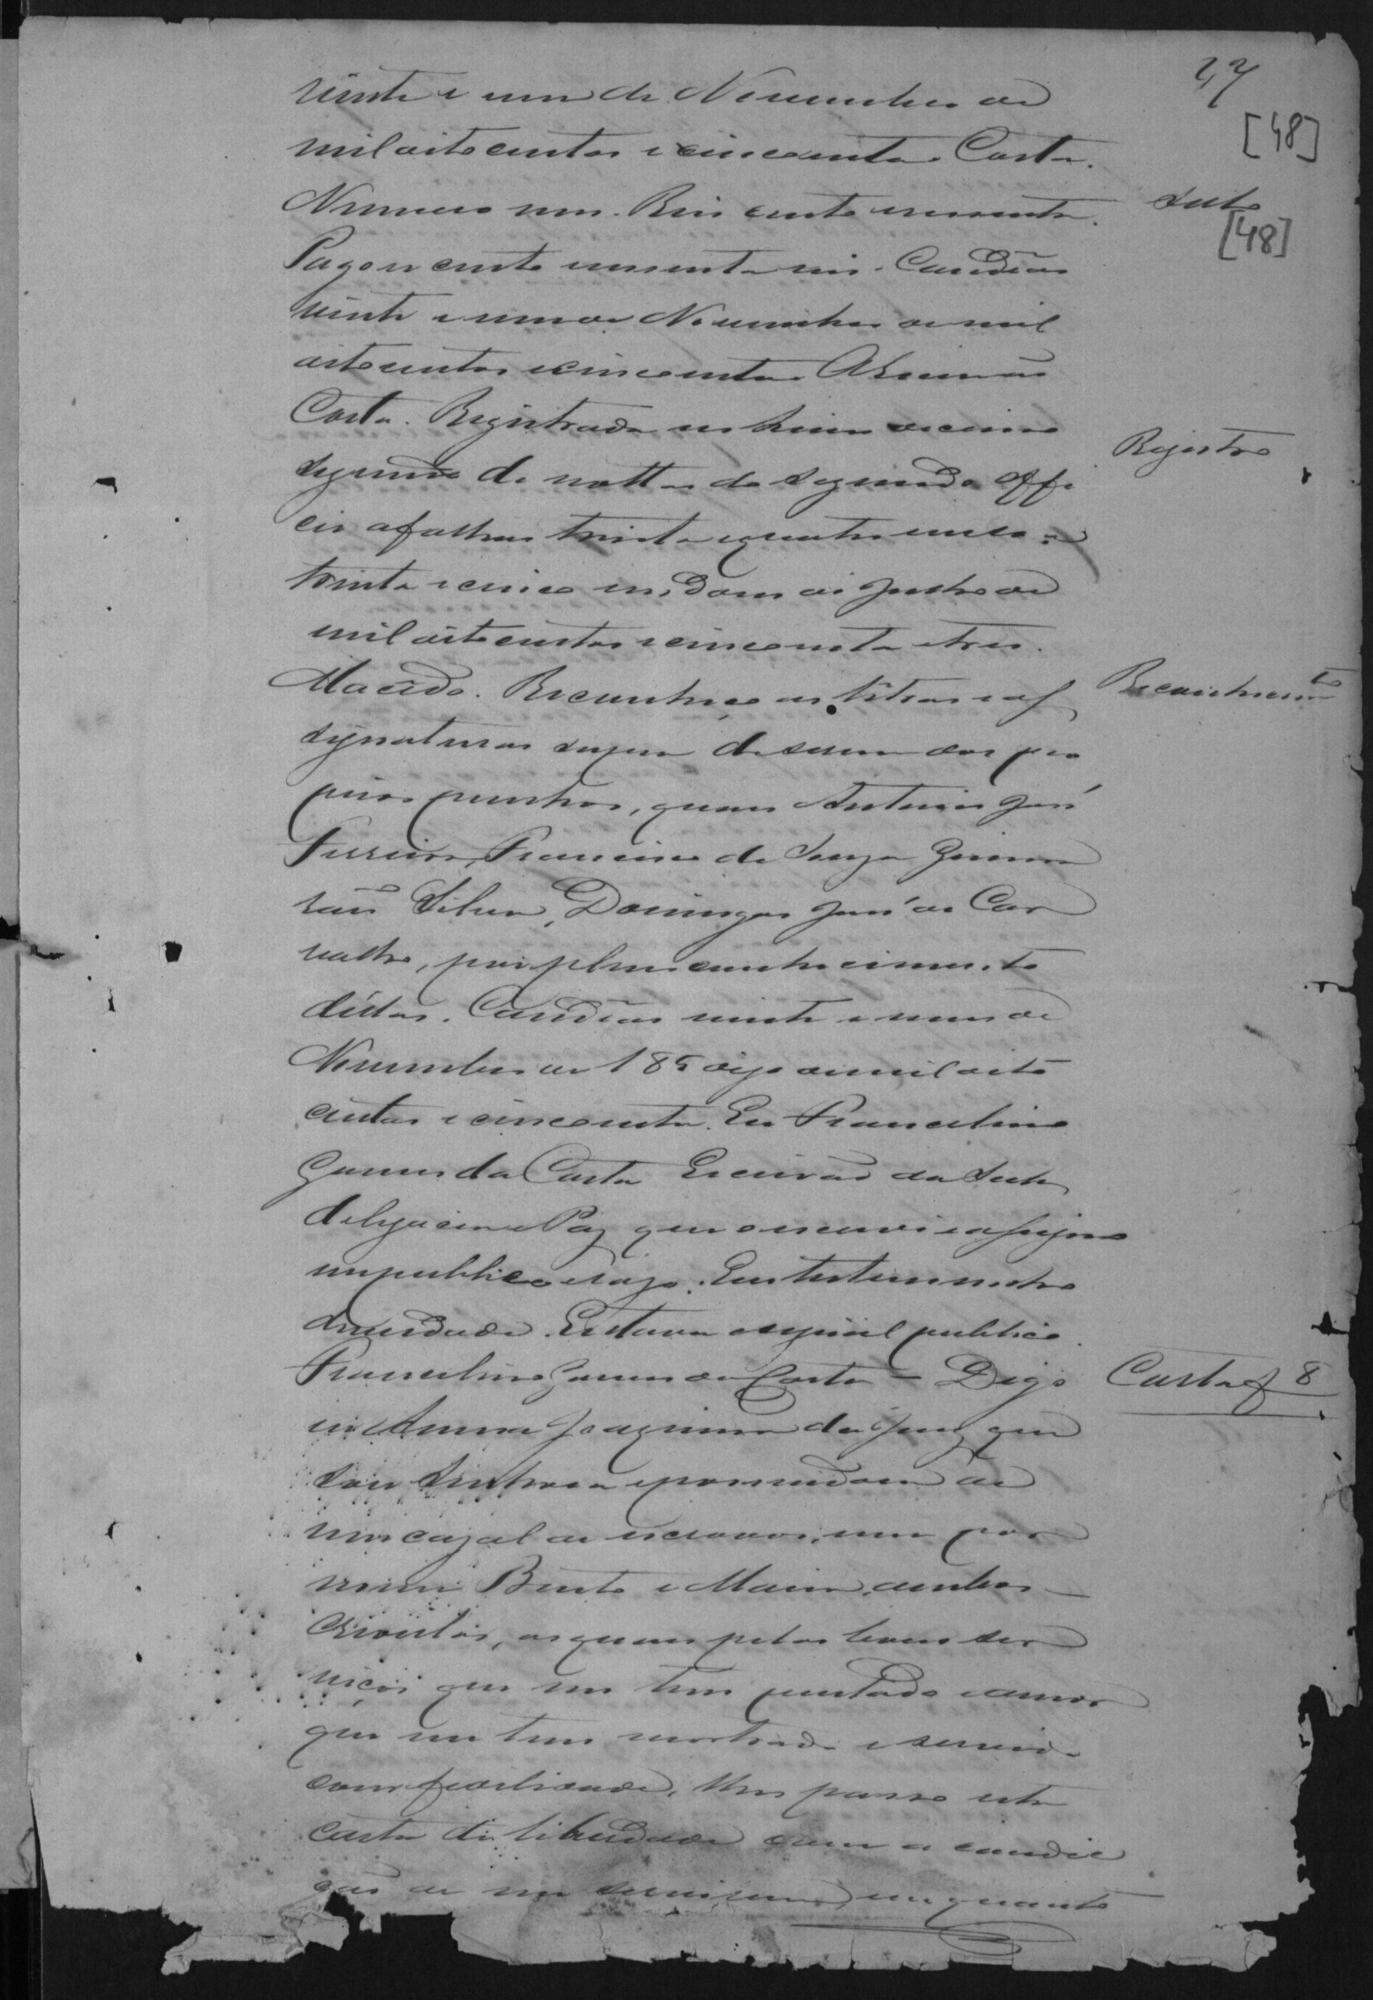 27
[48]
vinte e um de Novembro de
mil oito centos e cincoenta. Costa.
Numero um. Reis cento e sessenta.
Sello
[48]
Pagou cento e sessenta reis. Candeias
vinte e um de Novembro de mil
oito centos e cincoenta
Costa. Registrada no Livro decimo
Registro
segundo de nottas do segundo Offi
cio a folhas trinta e quatro verso a
trinta e cinco em Dous de Junho de
mil oito centos e cincoenta e tres.
Macêdo. Reconheço as letras e as
Reconhecimto
signaturas supra de serem dos pro
prios punhos, quaes Antonio José
Ferreira, Francisco de Souza Guima
rães Silva, Domingos José de Car
valho, por pleno conhecimento
déllas. Candeias vinte e um de
Novembro de 185 digo de mil oito
centos e cincoenta. Eu Francelino
Gomes da Costa Escrivão da Sub
delegacia e Paz que o escrevi e assigno
em publico e razo. Em testemunho
de verdade. Estava o signal publico.
Francelino Gomes da Costa – Digo
Carta 8
eu Anna Joaquina de Jesus que
sou Senhora e possuidora de
um cazal de escravos, um por
nome Bento e Maria, ambos
Crioulos, os quaes pelos bons ser
viços que me tem prestado e amor
que me tem mostrado e servido
com fidelidade, lhes passo esta
carta de liberdade com a condic
ção de me servirem, em quanto